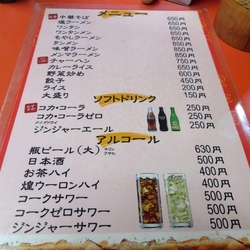 メニュー
中華そば 650円
塩ラーメン 650円
ワンタン 650円
ワンタンメン
もやしラーメン
タンメン
味噌ラーメン
メンマラーメン
チャーハン 750円
カレーライス 650円
野菜炒め 600円
餃子 450円
ライス 200円
大盛り 150円
ソフトドリンク
コカ・コーラ 250円
コカ・コーラゼロ 250円
ジンジャーエール 250円
アルコール
瓶ビール(大) 630円
日本酒 500円
お茶ハイ 400円
煌ウーロンハイ 400円
コークサワー 500円
コークゼロサワー 500円
ジンジャーサワー 500円